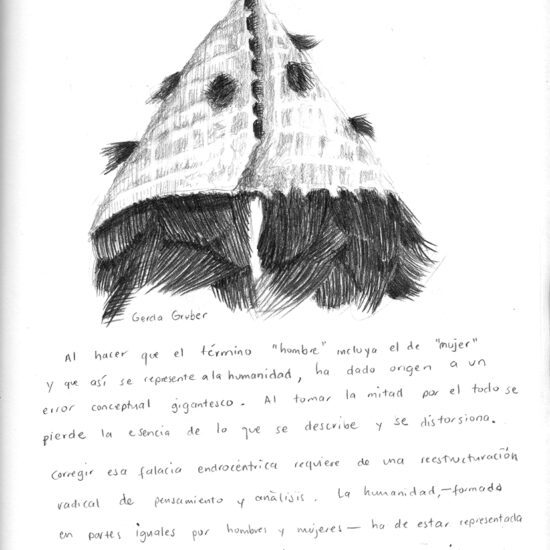 Gerda Gruber
Al hacer que el término "hombre" incluya el de "mujer"
y que así se represente a la humanidad, ha dado origen a un
error conceptual gigantesco. Al tomar la mitad por el todo se
pierde la esencia de lo que se describe y se distorsiona.
Corregir esa falacia endrocéntrica requiere de una reestructuración
radical de pensamiento y análisis. La humanidad, —formada
en partes iguales por hombres y mujeres— ha de estar representada